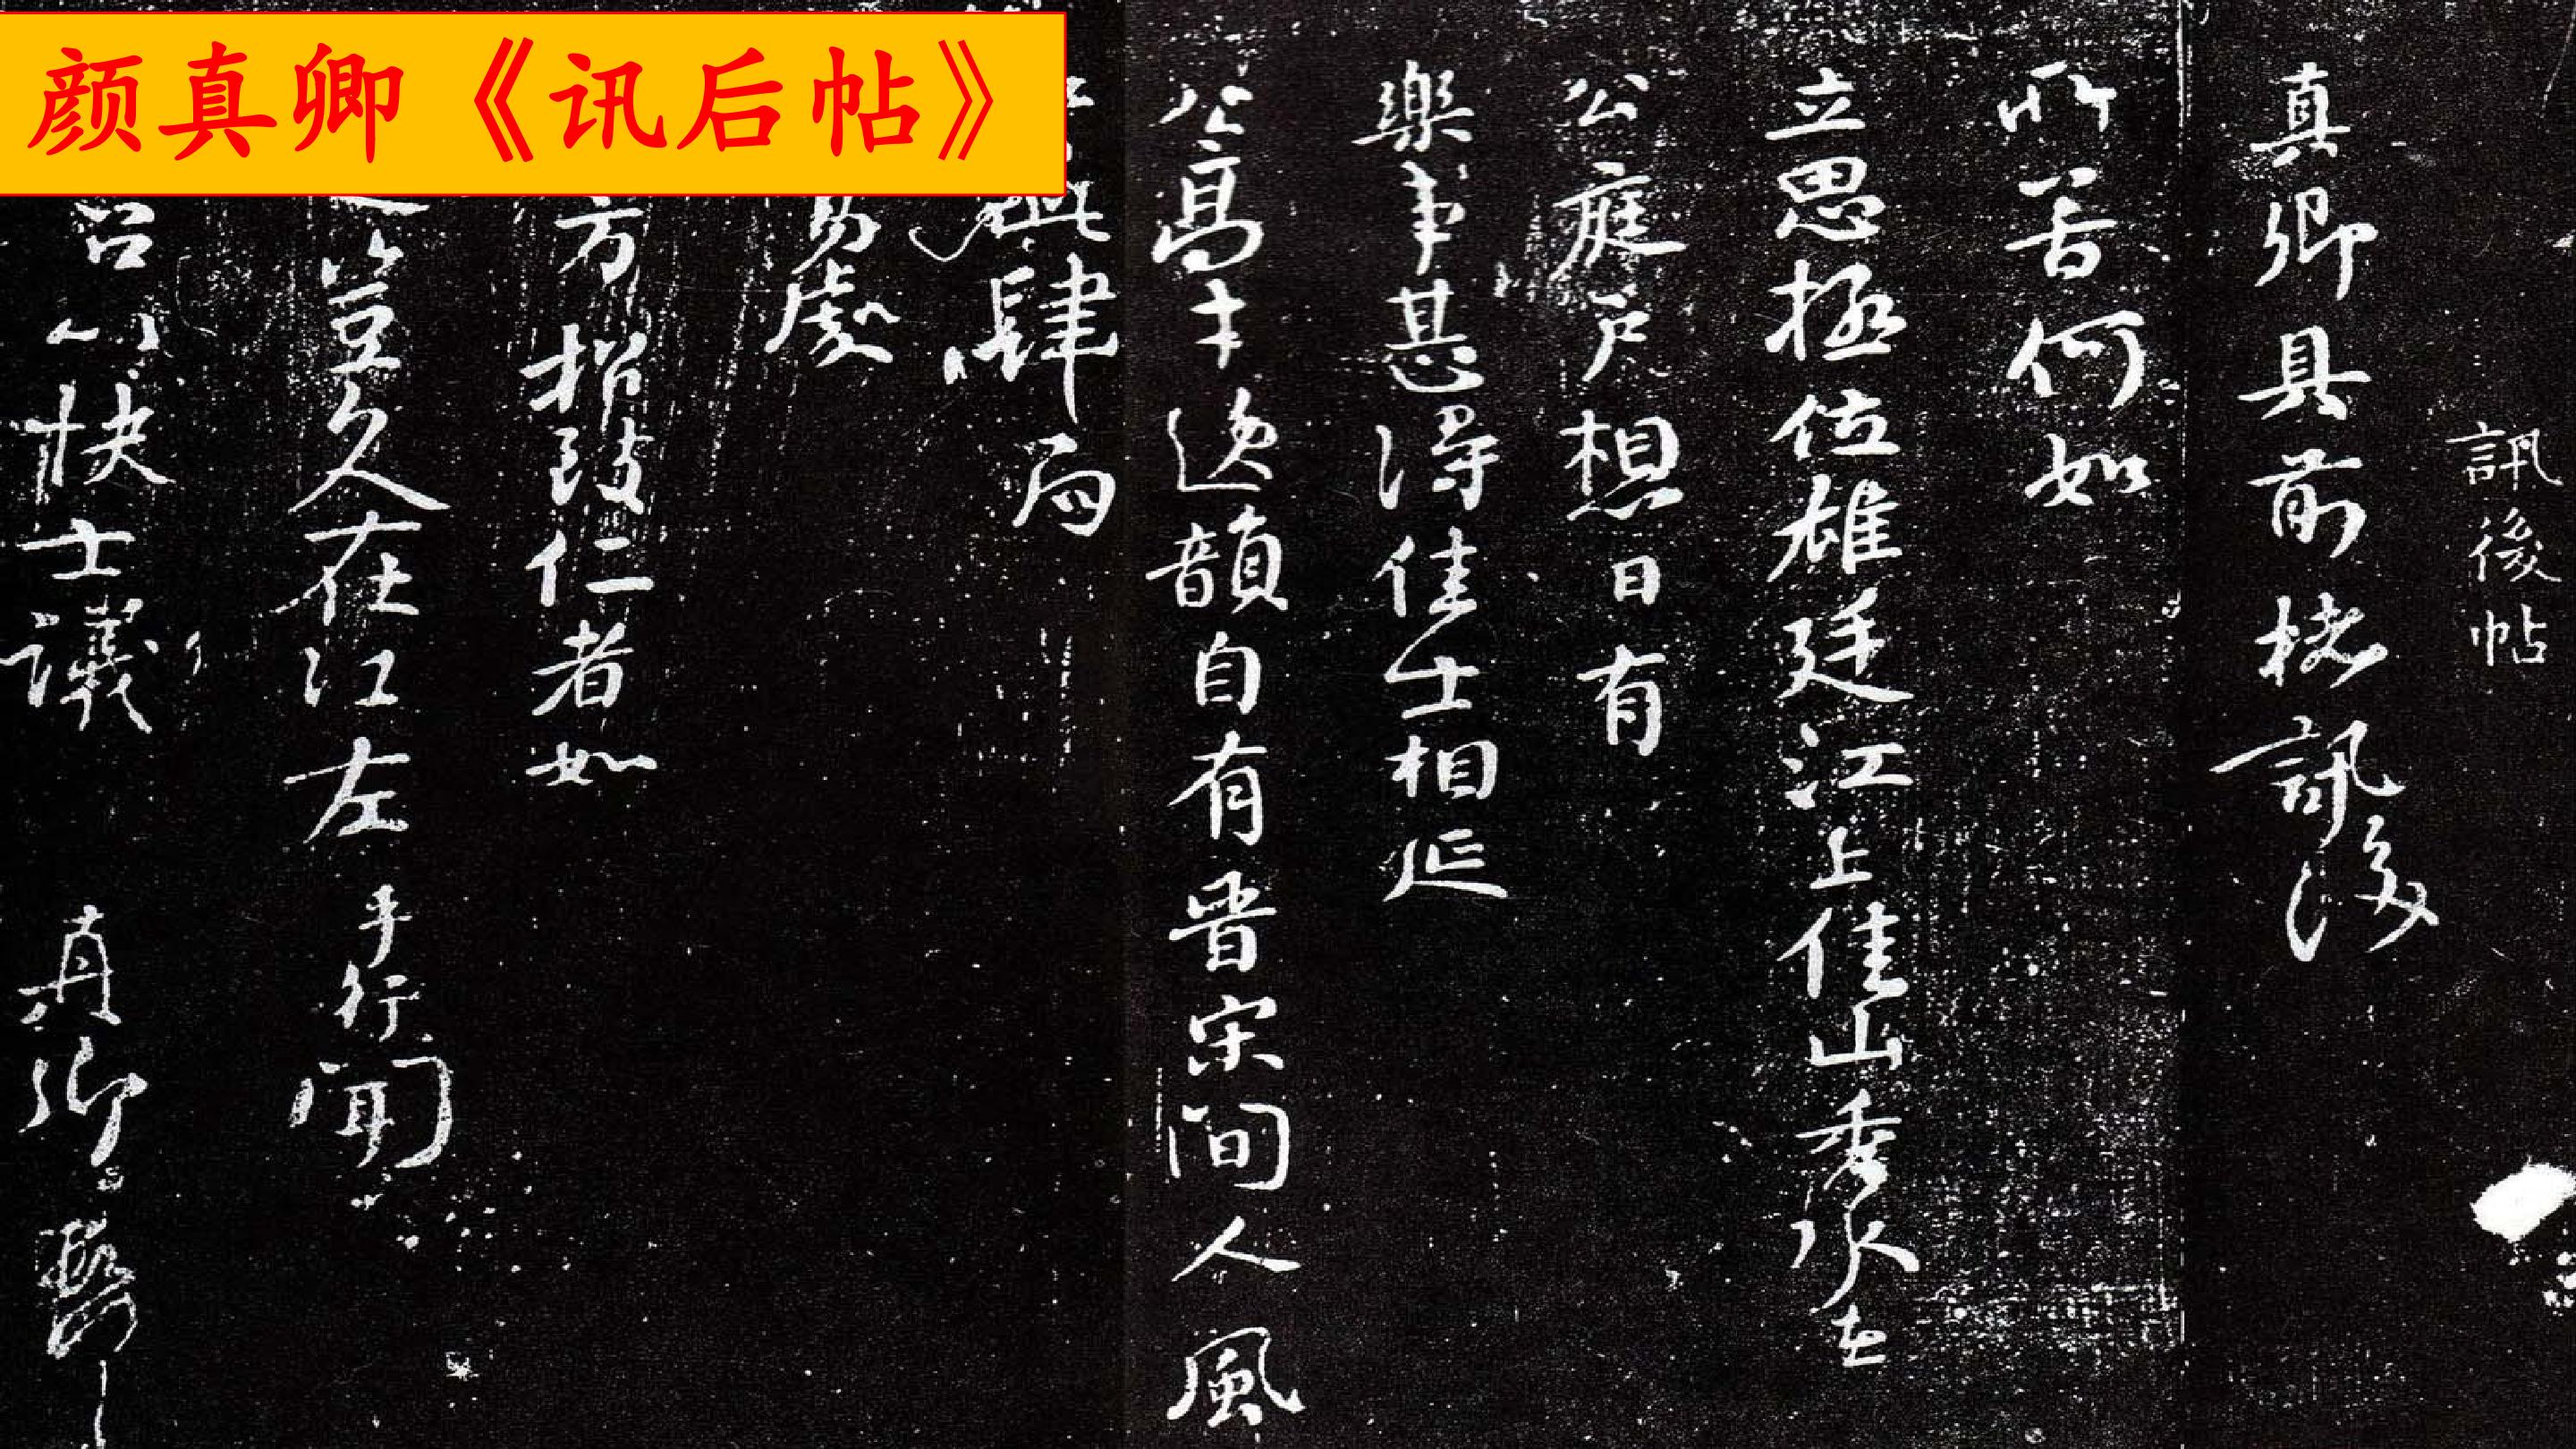 颜真卿《讯后帖》
訊後帖
真卿具前楮訊後
所苦何如
立思極位雄廷江上佳山秀水在
公庭户想日有
樂事甚得佳士相延
公高才逸韻自有晋宋間人風
肆而
易處
方招致仁者如
豈久在江左乎行聞
召以快士議 真卿